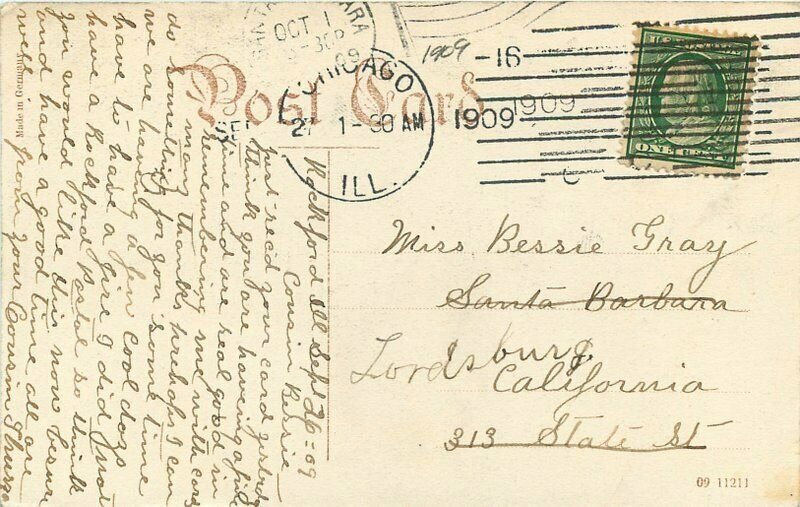 Post Card
Made in Germany
OCT 1
09
1909
CHICAGO
SEP 27 1-30 AM
ILL.
1909
-16
1909
ONE CENT
Rockford Ill Sept 26-09
Cousin Bessie
just rec'd your card yesterday
think you are having a fine
time and are real good in
remembering me with cards
many thanks perhaps I can
do something for you some time
we are having a few cool days
have to have a fire I did not
have a Rockford postal so think
you would like this now be sure
and have a good time all are
well from your Cousin
Miss Bessie Gray
Santa Barbara
Lordsburg
California
313 State St
09 11211